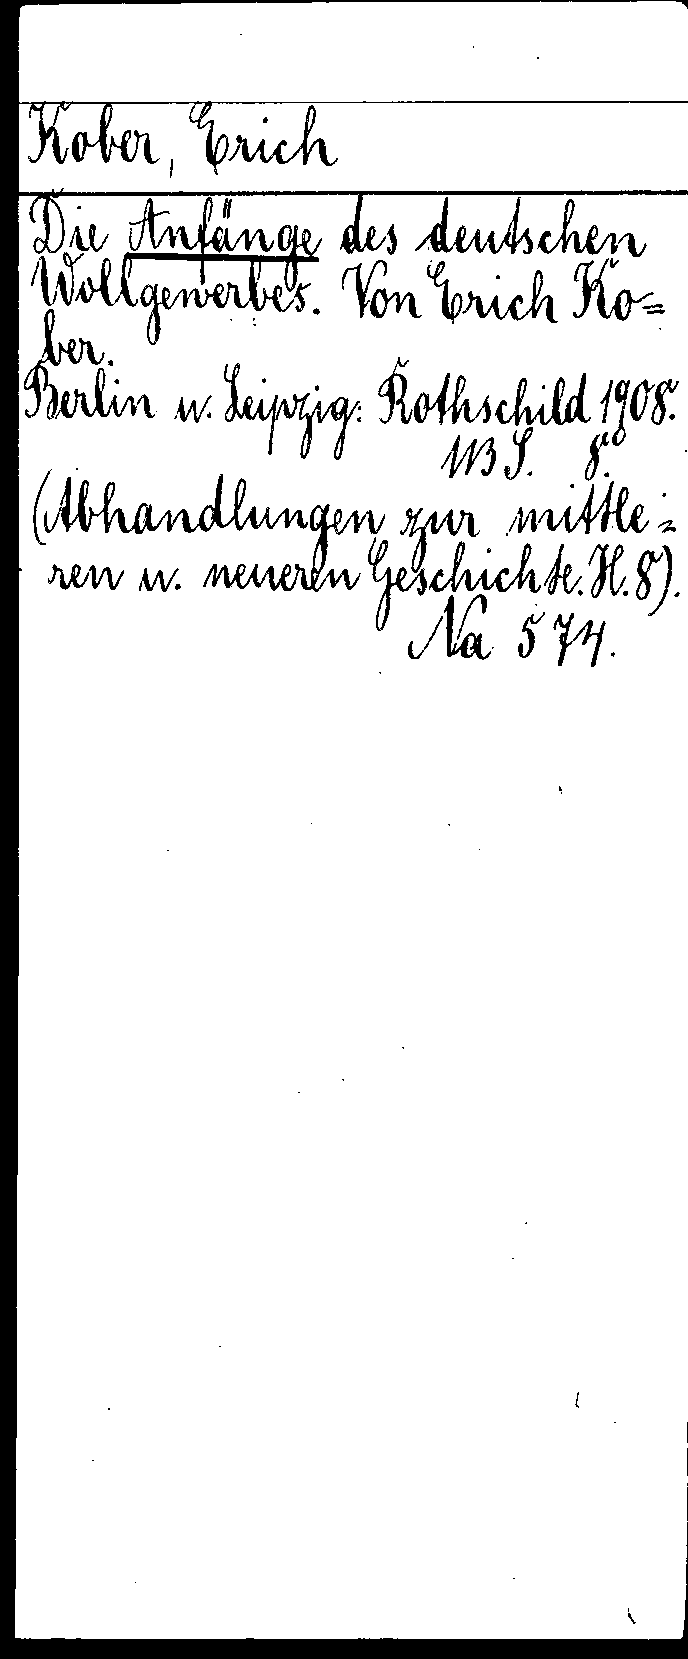 Kober, Erich
Die Anfänge des deutschen
Wollgewerbes. Von Erich Ko=
ber.
Berlin u. Leipzig: Rothschild 1908.
113 S. 8.°
(Abhandlungen zur mittle=
ren u. neueren Geschichte. H. 8).
Na 574.